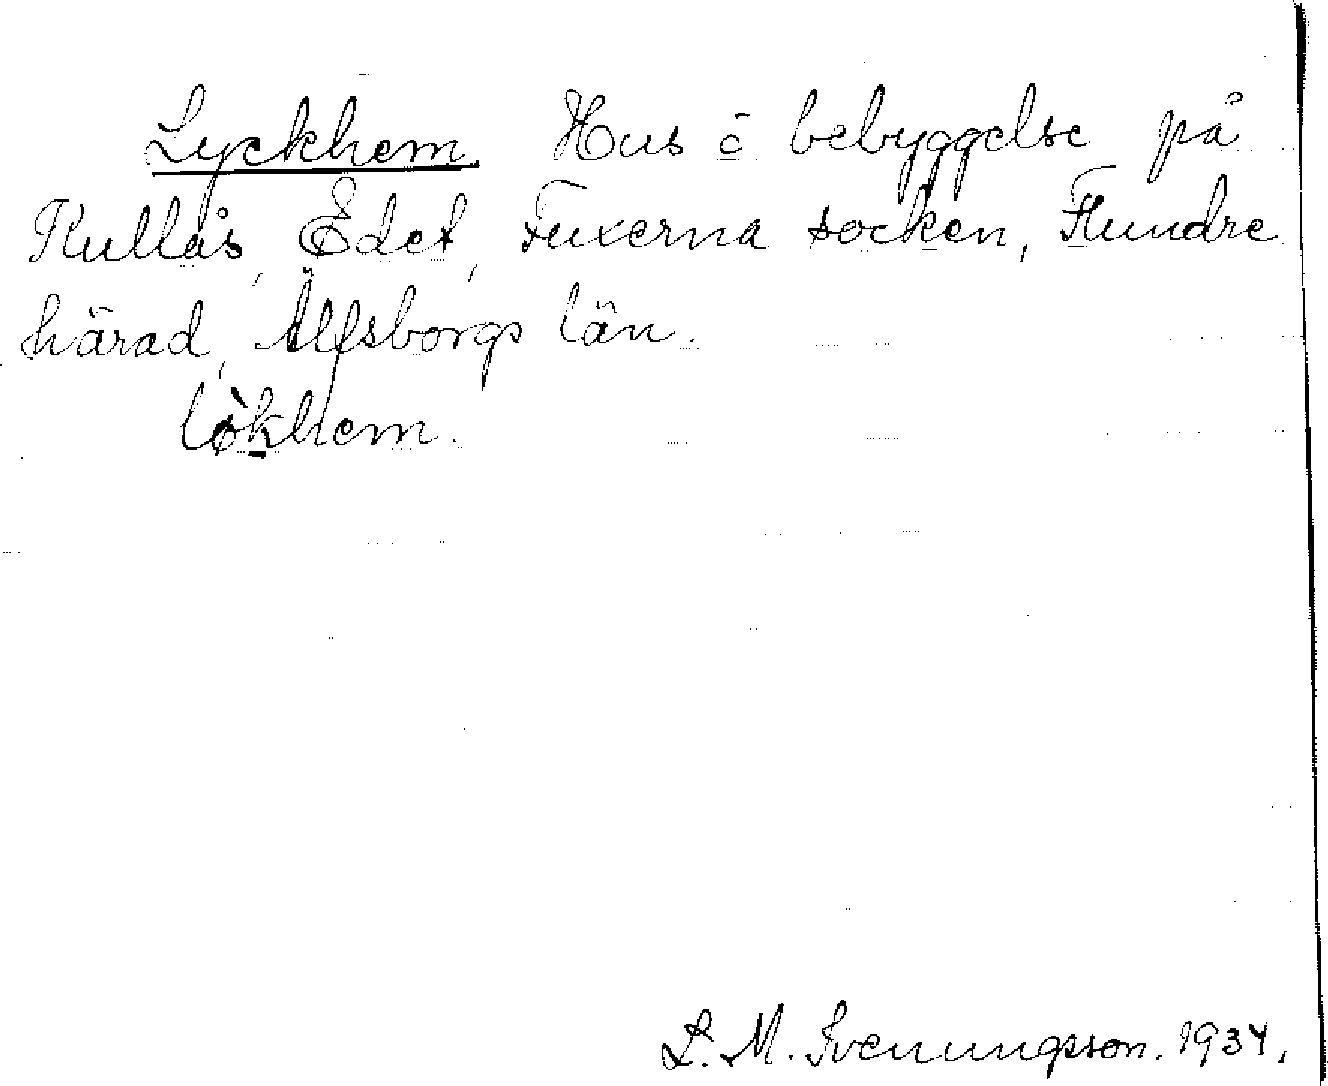 Lyckhem. Hus o bebyggelse på
Kullås, Edet, Fuxerna socken, Flundre
härad, Älfsborgs län.
lø̀khem.
L. M. Svenungsson. 1934.